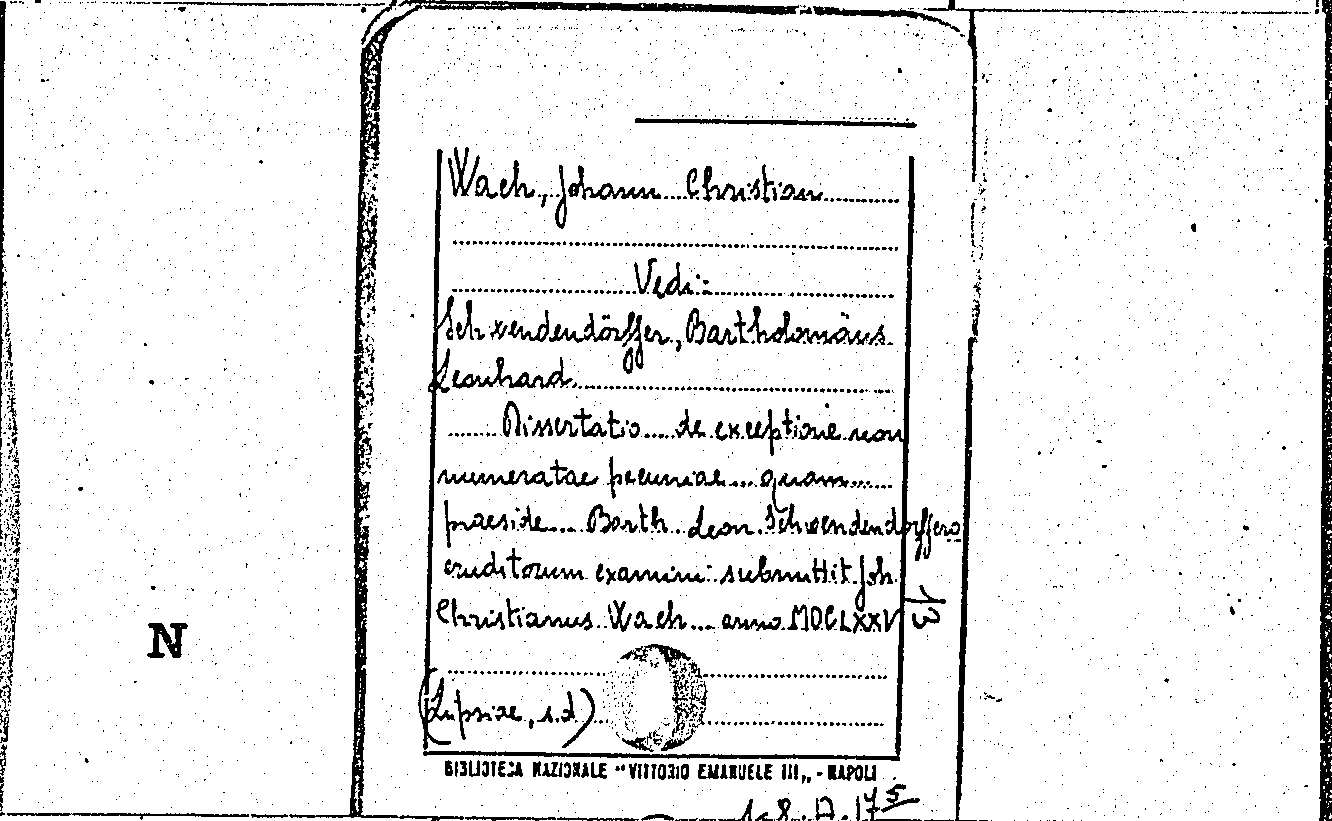 Wach, Johann Christian
Vedi:
Schwendendörffer, Bartholomäus
Leonhard
Dissertatio de exceptione non
numeratae pecuniae... quam...
praeside... Barth. Leon. Schwendendorffero
eruditorum examini submittit Joh.
Christianus Wach... anno MDCLXXV
13
(Lipsiae, s.d.)
BIBLIOTECA NAZIONALE "VITTORIO EMANUELE III„ - NAPOLI
N